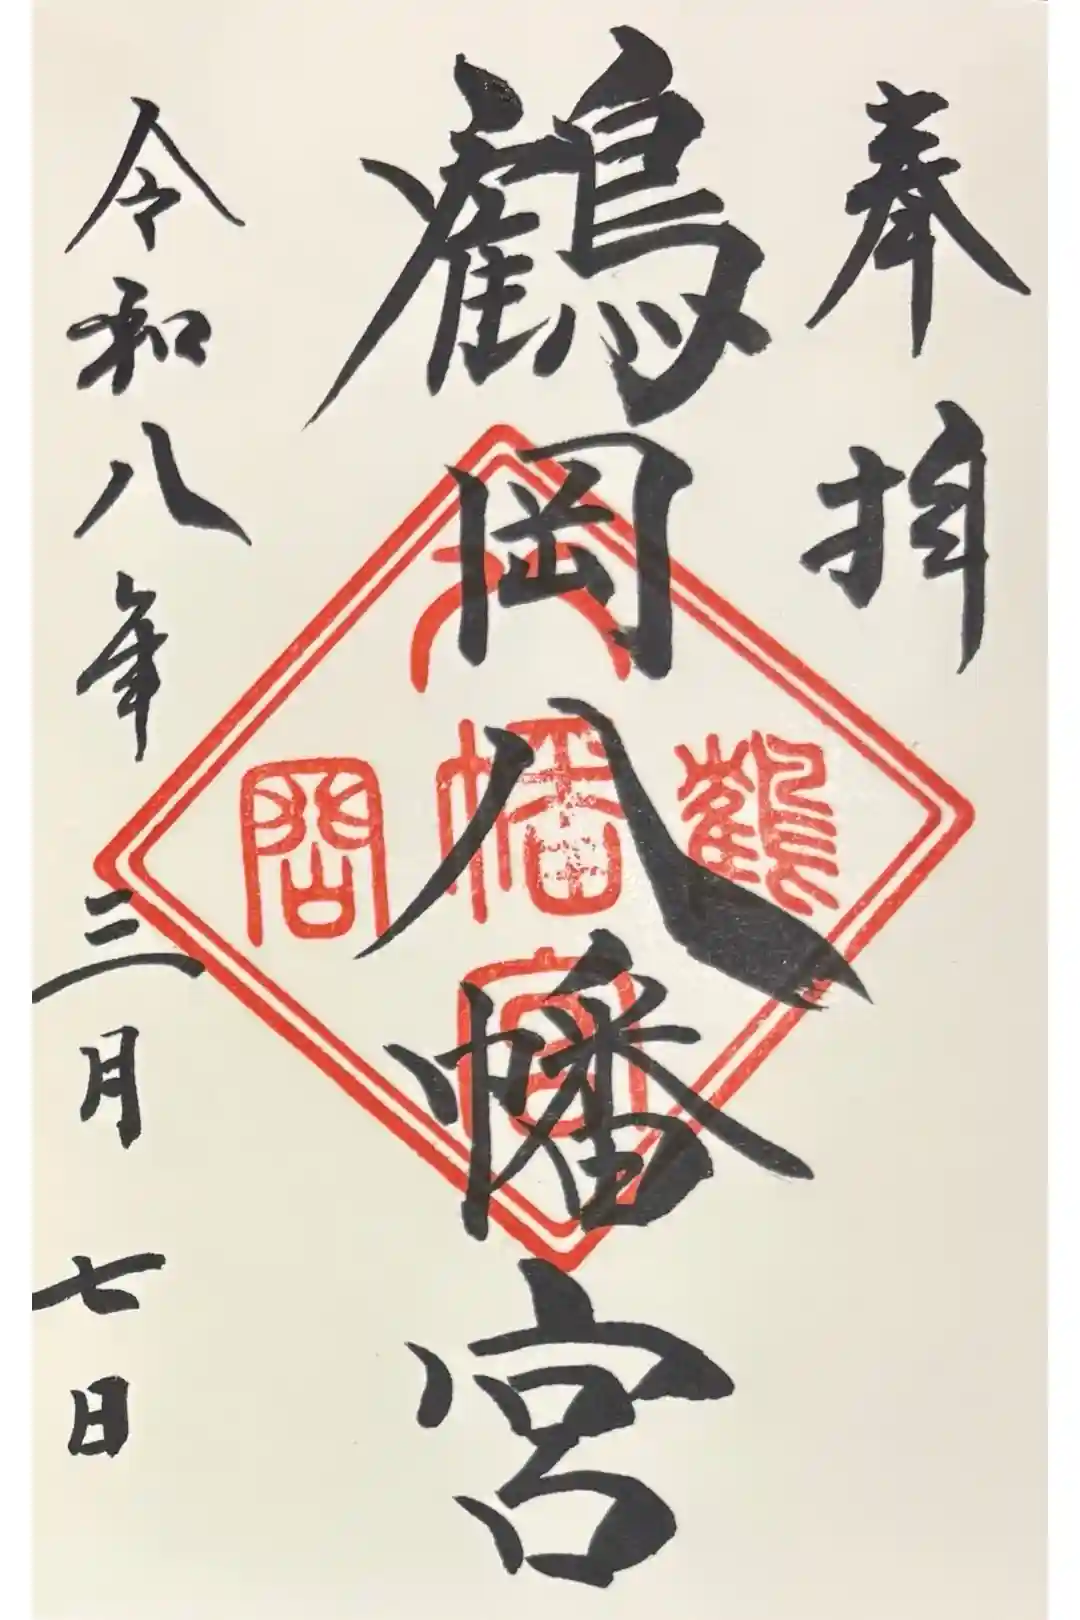 奉拝
鶴岡八幡宮
令和八年三月七日
八
鶴幡岡
宮